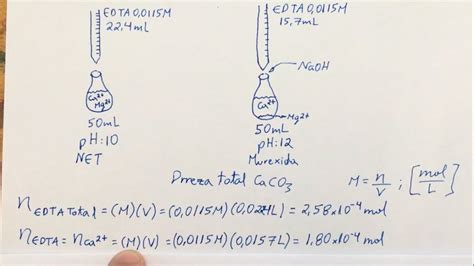 EDTA 0,0115M
22,4mL
Ca²⁺
Mg²⁺
50mL
pH:10
NET
EDTA 0,0115M
15,7mL
NaOH
Ca²⁺
Mg²⁺
50mL
pH:12
Murexida
Dureza total CaCO₃
M = n/V ; [mol/L]
n EDTA Total = (M)(V) = (0,0115M)(0,0224L) = 2,58x10⁻⁴ mol
n EDTA = n Ca²⁺ = (M)(V) = (0,0115M)(0,0157L) = 1,80x10⁻⁴ mol